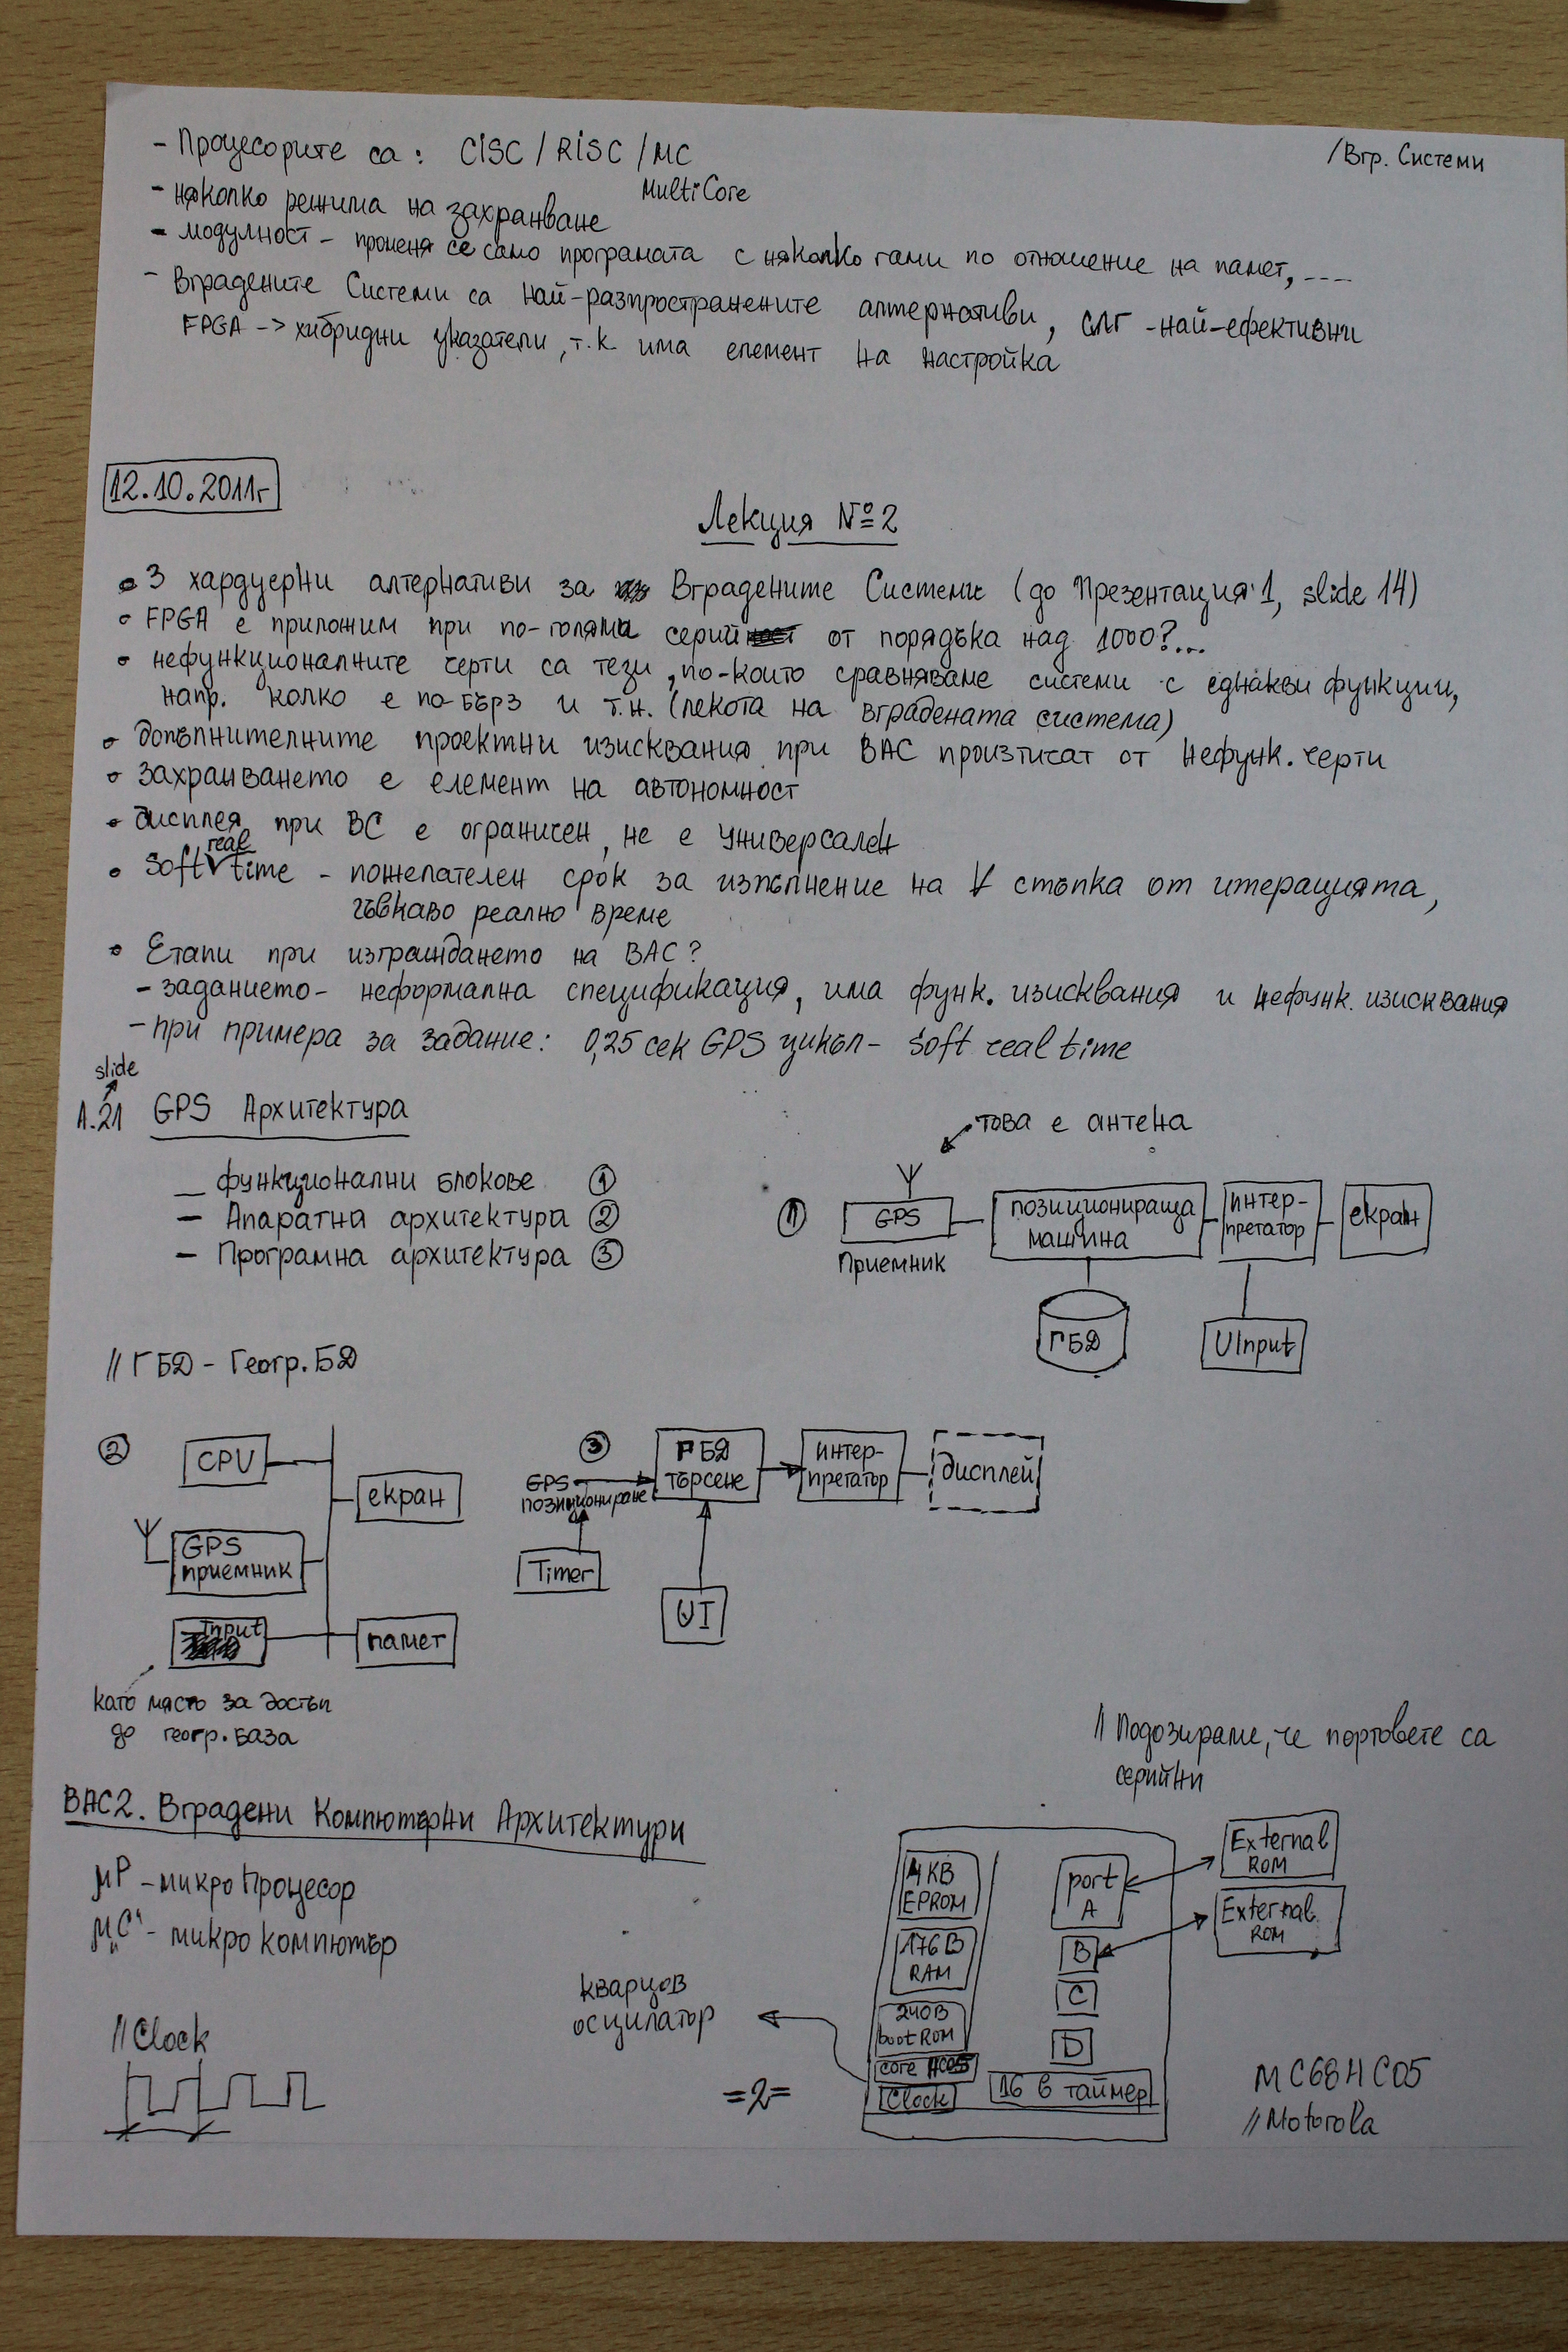 /Вгр. Системи
- Процесорите са: CISC / RISC / MC
MultiCore
- няколко режима на захранване
- модулност - променя се само програмата с няколко гами по отношение на памет, ----
- Вградените Системи са най-разпространените алтернативи, СЛГ - най-ефективни
FPGA -> хибридни указатели, т.к. има елемент на настройка
12.10.2011г
Лекция №2
• 3 хардуерни алтернативи за Вградените Системи (до Презентация 1, slide 14)
• FPGA е приложим при по-голяма серий от порядъка над 1000?...
• нефункционалните черти са тези, по-които сравняваме системи с еднакви функции,
напр. колко е по-бърз и т.н. (лекота на вградената система)
• допълнителните проектни изисквания при ВАС произтичат от нефунк. черти
• захранването е елемент на автономност
• дисплея при ВС е ограничен, не е универсален
• Soft real time - пожелателен срок за изпълнение на ∀ стъпка от итерацията,
гъвкаво реално време
• Етапи при изграждането на ВАС?
- заданието - неформална спецификация, има функ. изисквания и нефунк. изисквания
- при примера за задание: 0,25 сек GPS цикъл - Soft real time
slide
1.21 GPS Архитектура
това е антена
_ функционални блокове ①
- Апаратна архитектура ②
- Програмна архитектура ③
① GPS
Приемник
позиционираща
машина
интер-
претатор
екран
ГБД
UInput
// ГБД - Геогр. БД
② CPU
екран
GPS
приемник
Input
памет
като място за достъп
до геогр. база
③ GPS
позициониране
ГБД
търсене
интер-
претатор
дисплей
Timer
UI
// Подозираме, че портовете са
серийни
ВАС2. Вградени Компютърни Архитектури
μP - микро Процесор
μC - микро компютър
// Clock
кварцов
осцилатор
4KB
EPROM
176B
RAM
240B
boot ROM
core HC05
Clock
port
A
B
C
D
16 в таймер
External
ROM
External
ROM
MC68HC05
// Motorola
=2=